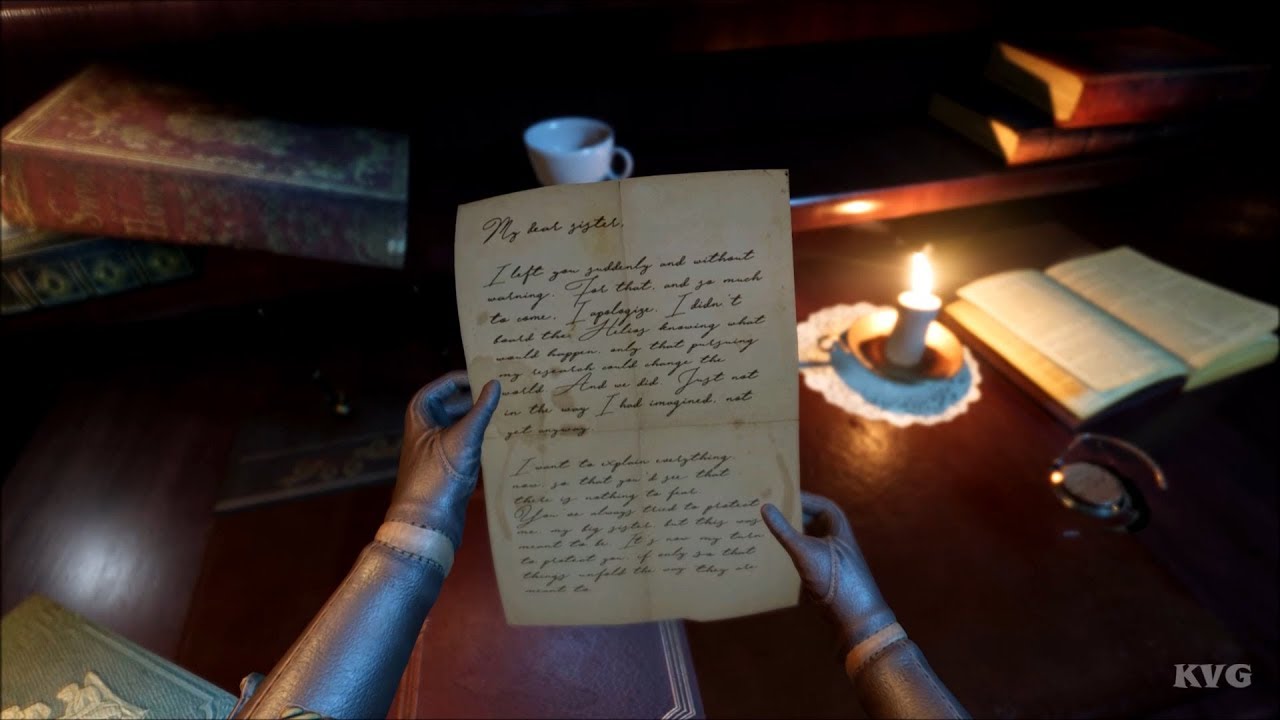 My dear sister,
I left you suddenly and without
warning. For that, and so much
to come, I apologize. I didn't
board the Helios knowing what
would happen, only that pursuing
my research could change the
world. And we did. Just not
in the way I had imagined, not
yet anyway.
I want to explain everything
now, so that you'd see that
there is nothing to fear.
You've always tried to protect
me, my big sister, but this was
meant to be. It's now my turn
to protect you, if only so that
things unfold the way they are
meant to.
KVG